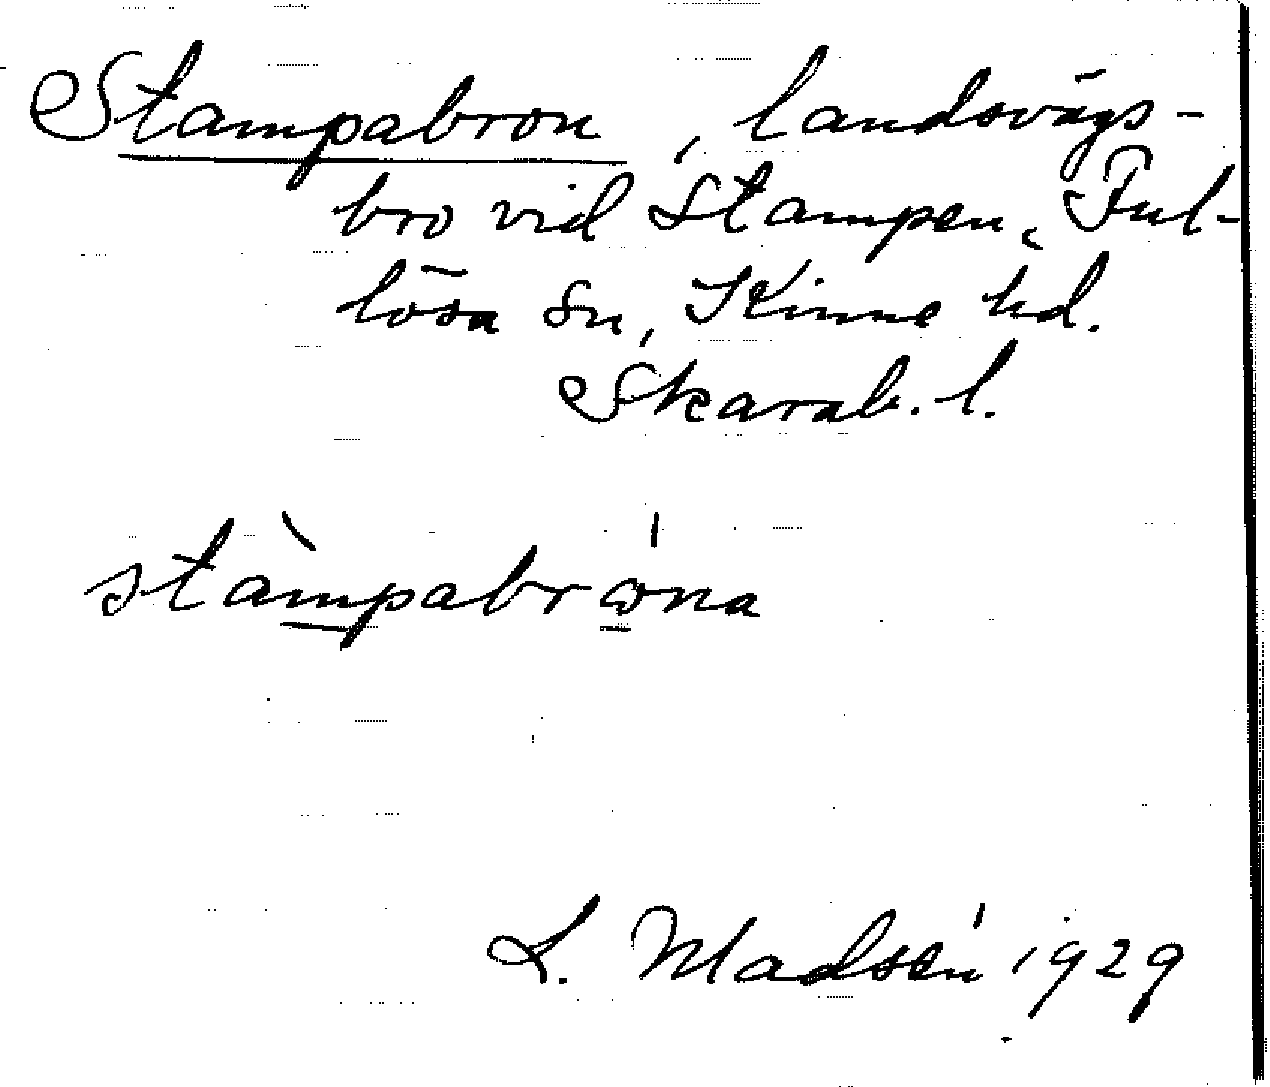 Stampabron, landsvägs-
bro vid Stampen, Ful-
lösa sn, Kinne hd.
Skarab. l.
stàmpabrω̍na
L. Madsén 1929